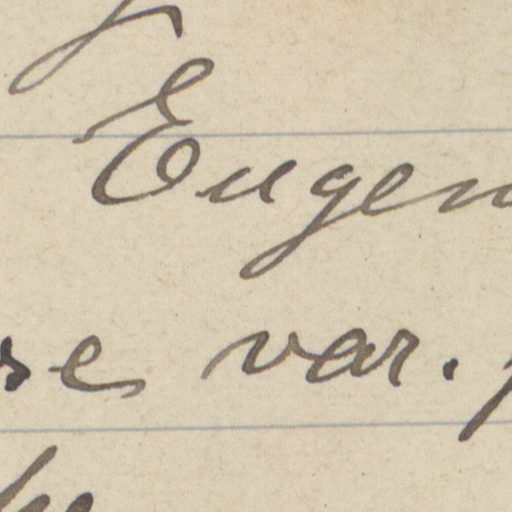 Eugen
se var.